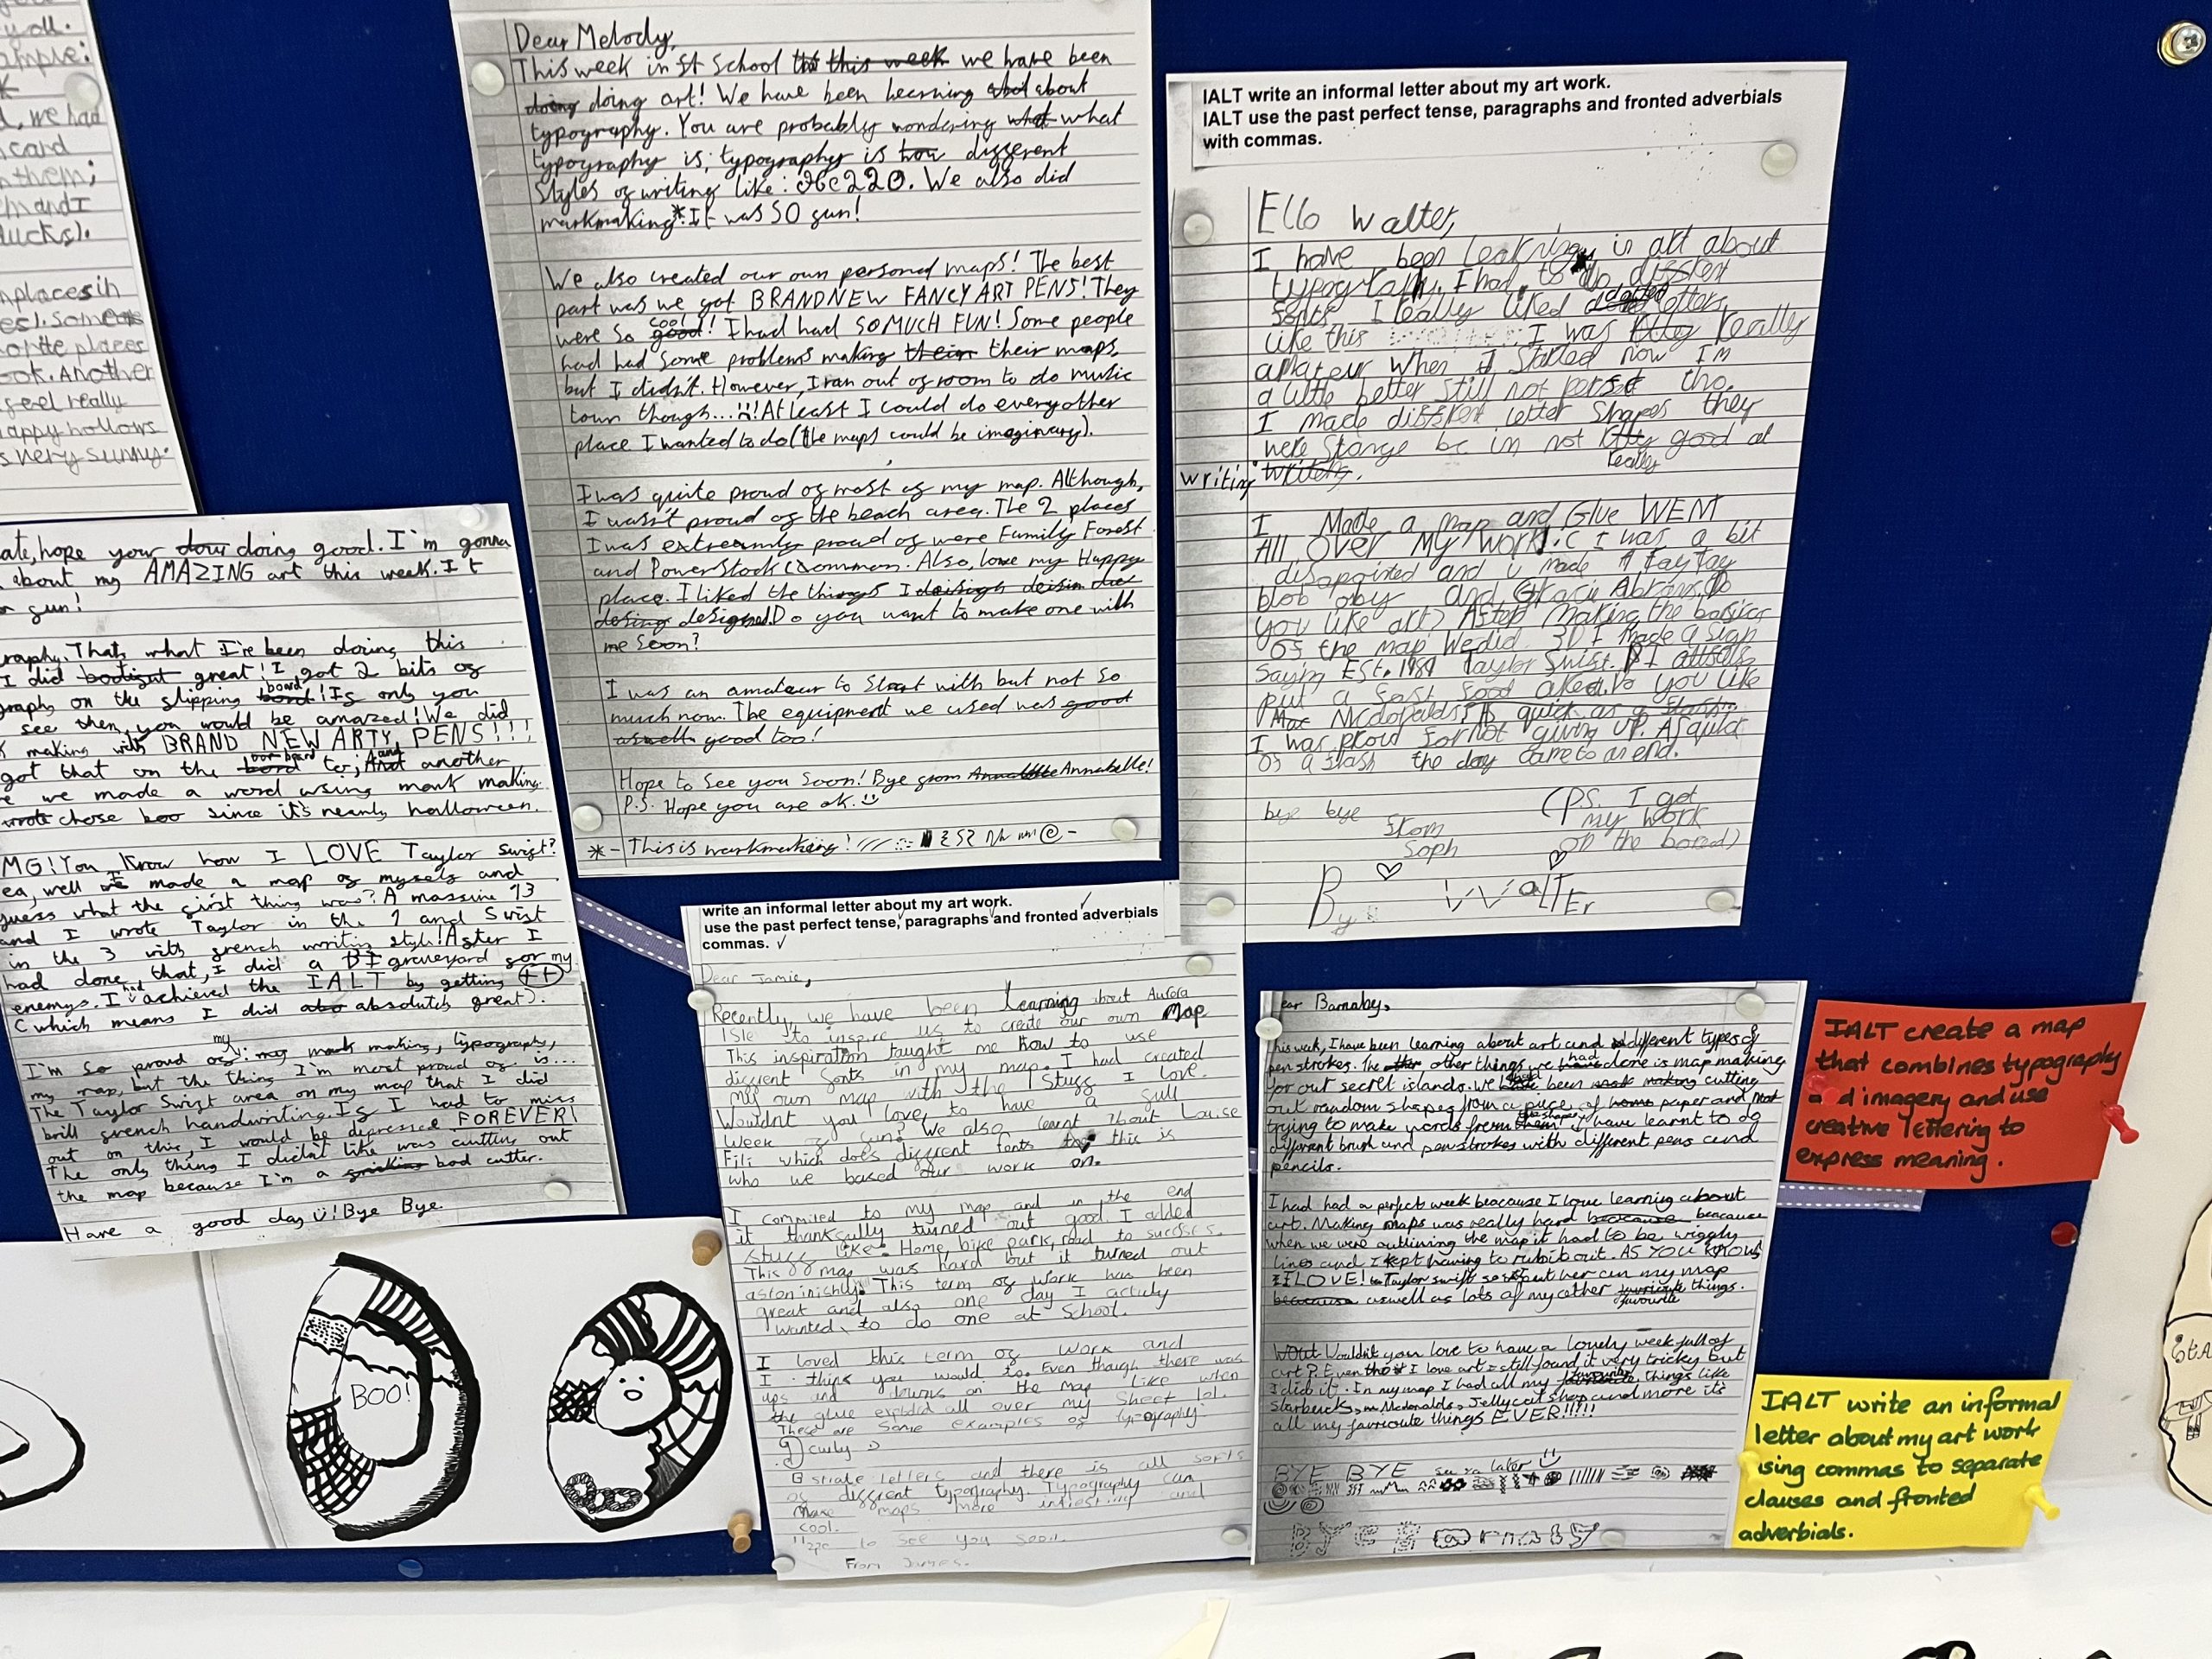 you.
ample:
K
d, we had
card
them;
m and I
Ducks).
places in
es). Some
orite places
ook. Another
feel really
appy hollows
s very sunny.
Dear Melody,
This week in st School this this week we have been
doing doing art! We have been learning abot about
typography. You are probably wondering what what
typography is; typography is how different
Styles of writing like: abc220. We also did
markmaking*. It was SO fun!
We also created our own personal maps! The best
part was we got BRAND NEW FANCY ART PENS! They
were so good cool! I had had SO MUCH FUN! Some people
had had some problems making their their maps,
but I didn't. However, I ran out of room to do music
town though... ! At least I could do every other
place I wanted to do (the maps could be imaginary).
I was quite proud of most of my map. Although,
I wasn't proud of the beach area. The 2 places
I was extreamly proud of were Family Forest
and PowerStock Common. Also, love my Happy
place. I liked the things I
desing designed. Do you want to make one with
me soon?
I was an amateur to Start with but not so
much now. The equipment we used was good
aswell good too!
Hope to see you soon! Bye from Annabelle!
P.S. Hope you are ok.
*- This is markmaking!
IALT write an informal letter about my art work.
IALT use the past perfect tense, paragraphs and fronted adverbials
with commas.
Ello Walter,
I have been learning in art about
typography. I had to do diffrent
fonts I really liked dotted letters
like this I was really
amateur when I started now I'm
a little better still not perfect tho.
I made diffrent letter shapes they
were stange be im not good at
really
writing writeing.
I Made a map and Glue WENT
All OVER MY WORK! :c I was a bit
disapointed and i made A Tay Tay
blob oby and Gracie Abrams. Do
you like art? After making the basics
of the map We did 3D I made a sign
saying EST. 1989 Taylor Swift. I allso
put a fast food area. Do you like
Mac Mcdonalds? As quick as a flash
I was proud for not giving up. As quick
of a flash the day came to an end.
bye bye
from
Soph
(PS. I got
my work
on the bored)
Bye WalTEr
ate, hope your dour doing good. I'm gonna
about my AMAZING art this week. It
fun!
raphy. Thats what I've been doring this
I did great! I got 2 bits of
graph on the flipping bord board! If only you
see then, you would be amazed! We did
k making with BRAND NEW ARTY PENS!!!
got that on the board to; And and another
e we made a word using mark making.
wrote chose boo since it's nearly halloween.
MG! You know how I LOVE Taylor Swift?
ea, well I made a map of myself and
guess what the first thing was? A massive 13
and I wrote Taylor in the 1 and Swift
in the 3 with french writing style! After I
had done that, I did a graveyard for my
enemys. I had achieved the IALT by getting ++
(which means I did abo absolutely great).
I'm so proud of: my my mark making, typography,
my map, but the thing I'm most proud of is...
The Taylor Swift area on my map that I did
brill french handwriting. If I had to miss
out on this, I would be depressed FOREVER!
The only thing I didn't like was cutting out
the map because I'm a bad cutter.
Have a good day! Bye Bye.
BOO!
write an informal letter about my art work.
use the past perfect tense, paragraphs and fronted adverbials
commas.
Dear Jamie,
Recently, we have been learning about Aurora
Isle to inspire us to create our own Map
This inspiration taught me how to use
diffrent fonts in my map. I had created
my own map with the stuff I love.
Wouldnt you love to have a full
week of fun? We also learnt about Louise
Fili which does diffrent fonts this is
who we based our work on.
I commited to my map and in the end
it thankfully turned out good. I added
stuff like: Home, bike park, road to sucsses.
This map was hard but it turned out
astoninishly. This term of work has been
great and also one day I actuly
wanted to do one at school.
I loved this term of work and
I think you would to. Even though there was
ups and downs on the map like when
the glue exploded all over my sheet lol.
These are some examples of typography:
curly
letters and there is all sorts
of diffrent typography. Typography can
make maps more and
cool.
Hope to see you soon.
From James.
ear Barnaby,
his week, I have been learning about art and different types of
pen strokes. The other other things we had done is map making
for out secret islands. We had been making cutting
out random shapes from a piece of paper and
trying to make words from them the shapes. I have learnt to do
different brush and pen strokes with different pens and
pencils.
I had had a perfect week beacause I love learning about
art. Making maps was really hard because beacause
when we were outlining the map it had to be wiggly
lines and I kept having to rub it out. AS YOU KNOW
I LOVE! Taylor swift so I put her on my map
beacause aswell as lots of my other favourite things.
Wouldn't you love to have a lovely week full of
art? Even tho I love art I still found it very tricky but
I did it. In my map I had all my favourite things like
starbucks, Mcdonalds, Jellycat shop and more it's
all my favrioute things EVER!!!!!
BYE BYE see ya later
BYE Barnaby
IALT create a map
that combines typography
and imagery and use
creative lettering to
express meaning.
IALT write an informal
letter about my art work
using commas to separate
clauses and fronted
adverbials.